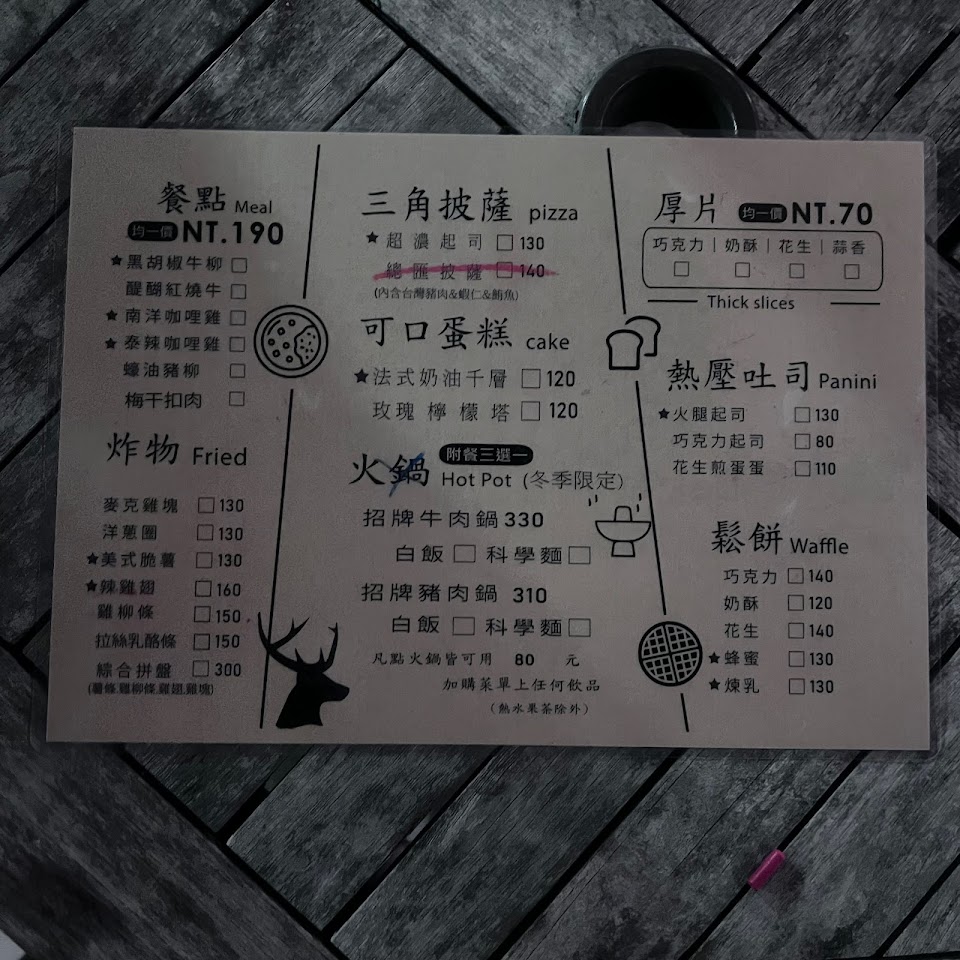 餐點 Meal
均一價 NT.190
★黑胡椒牛柳 □
醍醐紅燒牛 □
★南洋咖哩雞 □
★泰辣咖哩雞 □
蠔油豬柳 □
梅干扣肉 □
炸物 Fried
麥克雞塊 □ 130
洋蔥圈 □ 130
★美式脆薯 □ 130
★辣雞翅 □ 160
雞柳條 □ 150
拉絲乳酪條 □ 150
綜合拼盤 □ 300
(薯條.雞柳條.雞翅.雞塊)
三角披薩 pizza
★超濃起司 □ 130
總匯披薩 □ 140
(內含台灣豬肉&蝦仁&鮪魚)
可口蛋糕 cake
★法式奶油千層 □ 120
玫瑰檸檬塔 □ 120
附餐三選一
火鍋 Hot Pot (冬季限定)
招牌牛肉鍋 330
白飯 □ 科學麵 □
招牌豬肉鍋 310
白飯 □ 科學麵 □
凡點火鍋皆可用 80 元
加購菜單上任何飲品
(熱水果茶除外)
厚片 均一價 NT.70
巧克力|奶酥|花生|蒜香
□ □ □ □
Thick slices
熱壓吐司 Panini
★火腿起司 □ 130
巧克力起司 □ 80
花生煎蛋蛋 □ 110
鬆餅 Waffle
巧克力 □ 140
奶酥 □ 120
花生 □ 140
★蜂蜜 □ 130
★煉乳 □ 130